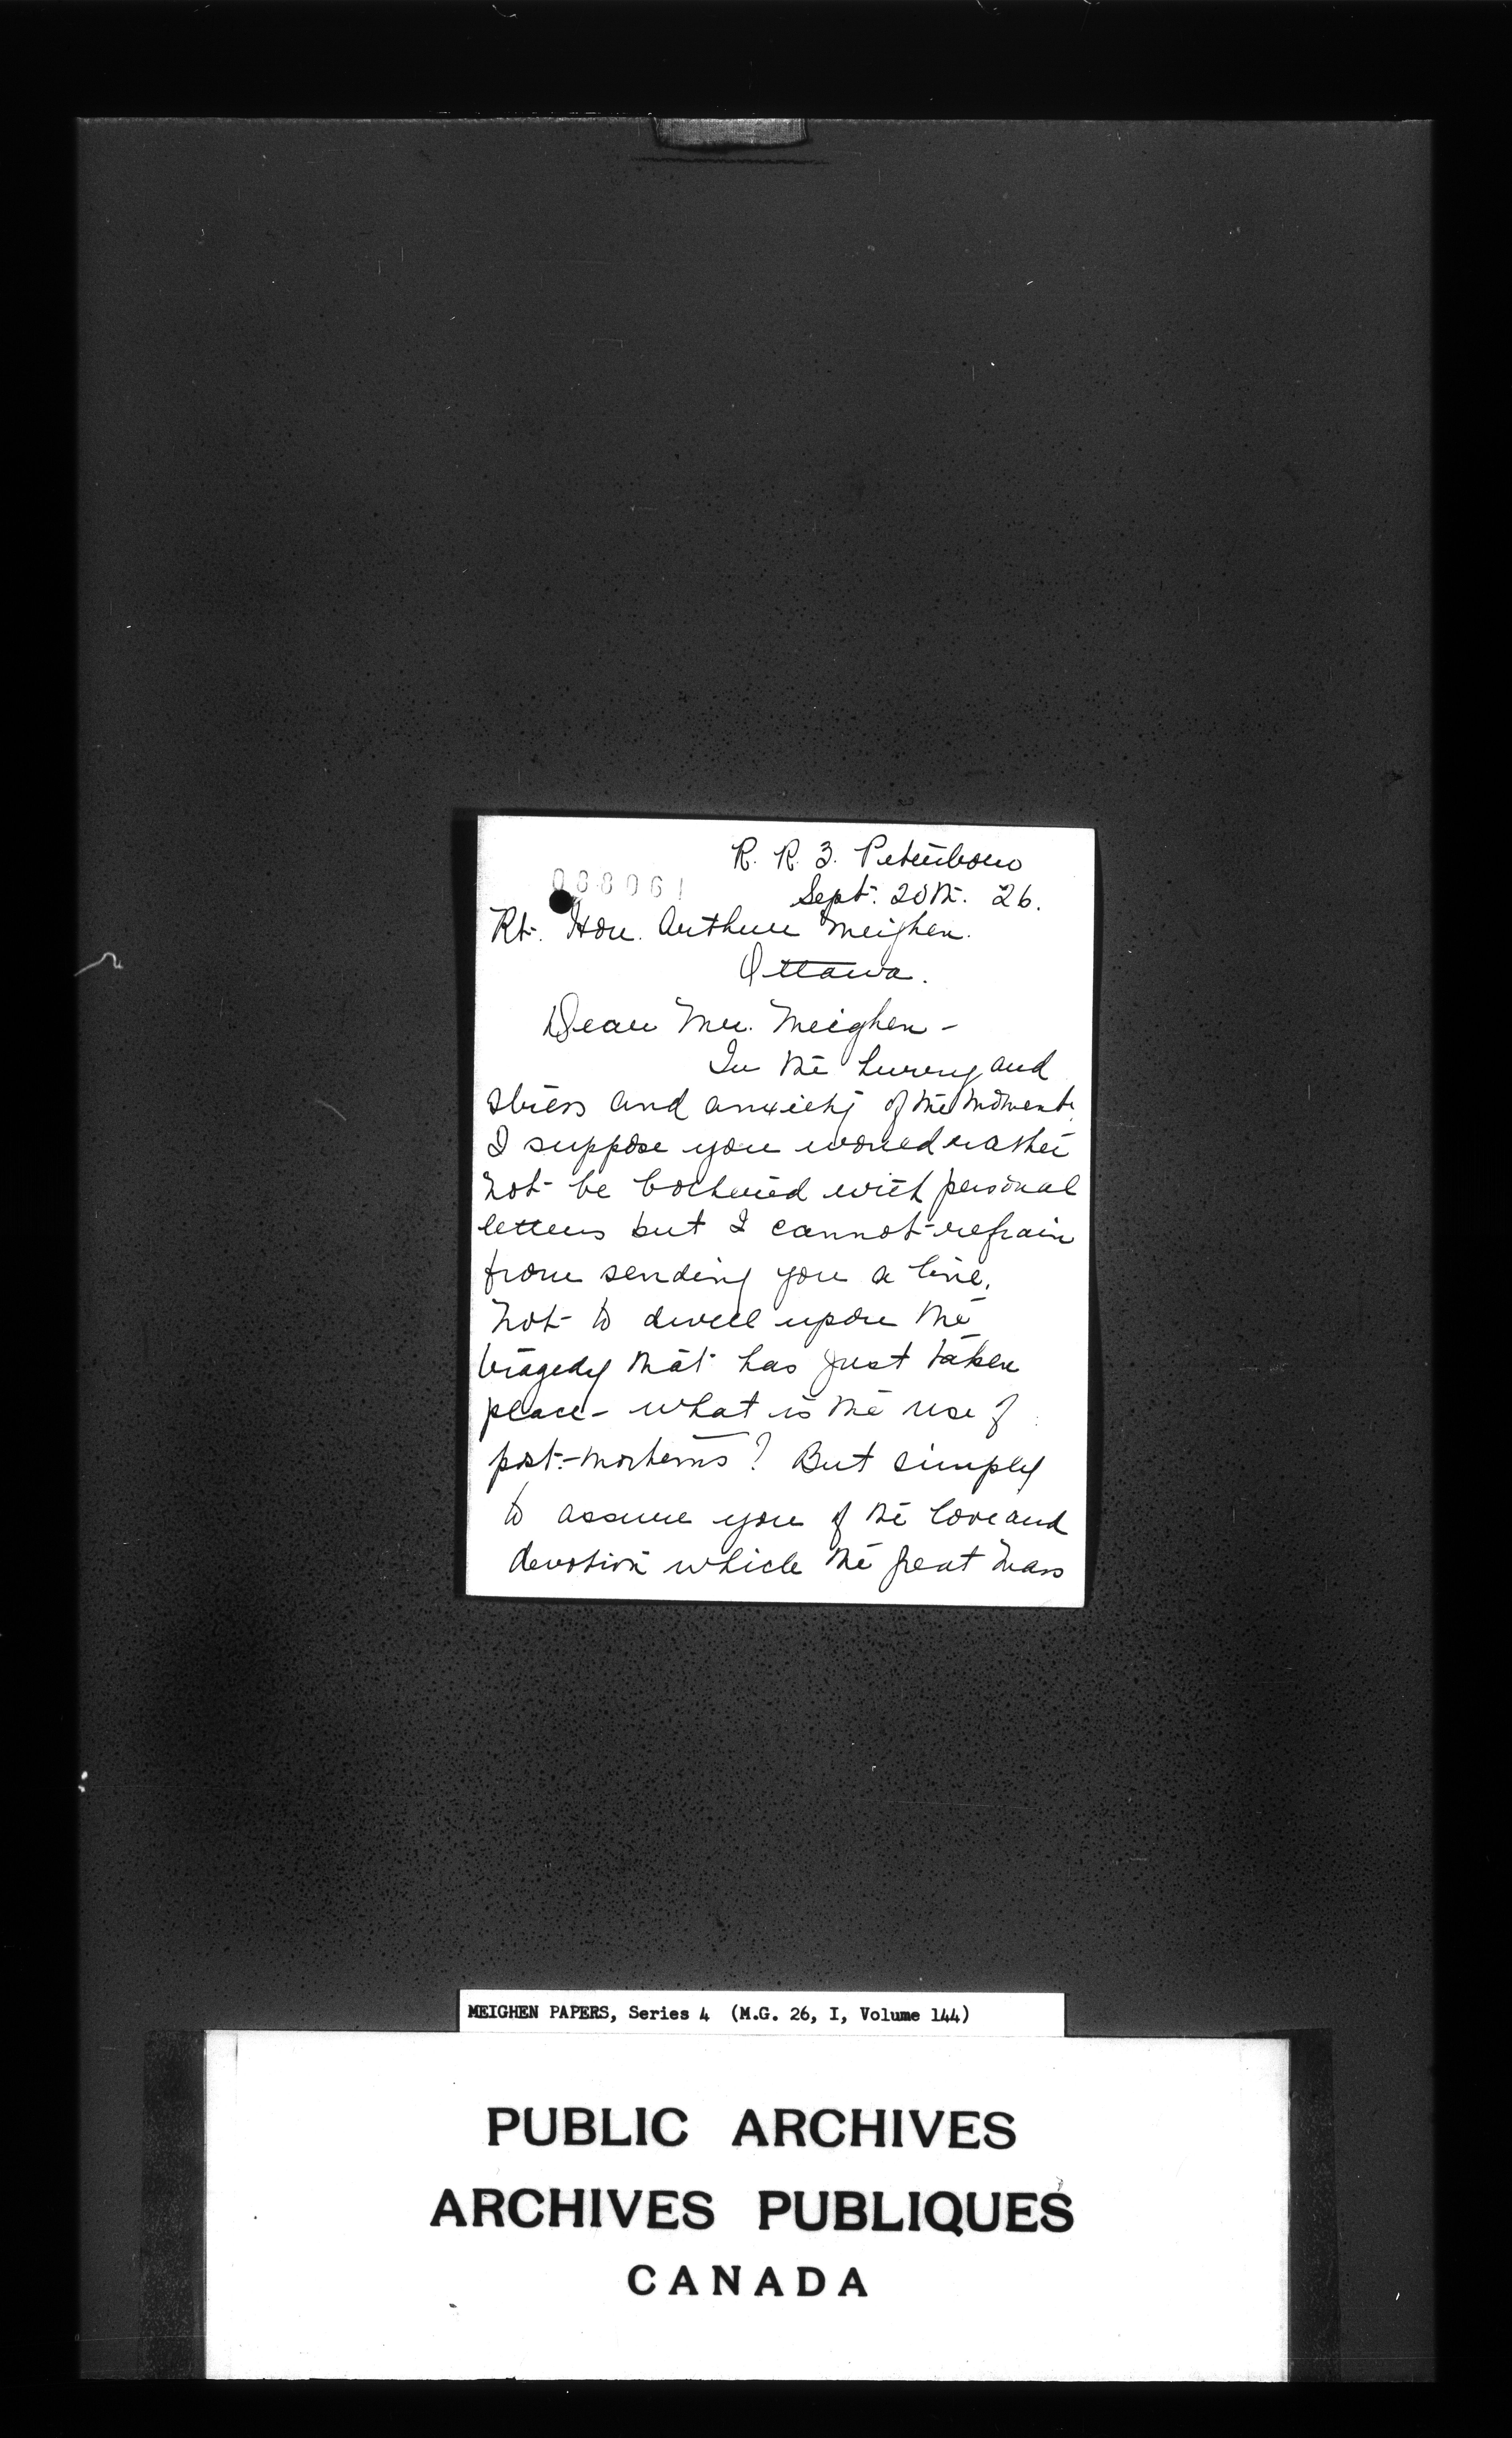 R. R. 3. Peterboro
Sept. 20th. 26.
Rt. Hon. Arthur Meighen.
Ottawa.
Dear Mr. Meighen -
In the hurry and
stress and anxiety of the moment
I suppose you would rather
not be bothered with personal
letters but I cannot refrain
from sending you a line,
not to dwell upon the
tragedy that has just taken
place - what is the use of
post-mortems? But simply
to assure you of the love and
devotion which the great mass
MEIGHEN PAPERS, Series 4 (M.G. 26, I, Volume 144)
PUBLIC ARCHIVES
ARCHIVES PUBLIQUES
CANADA